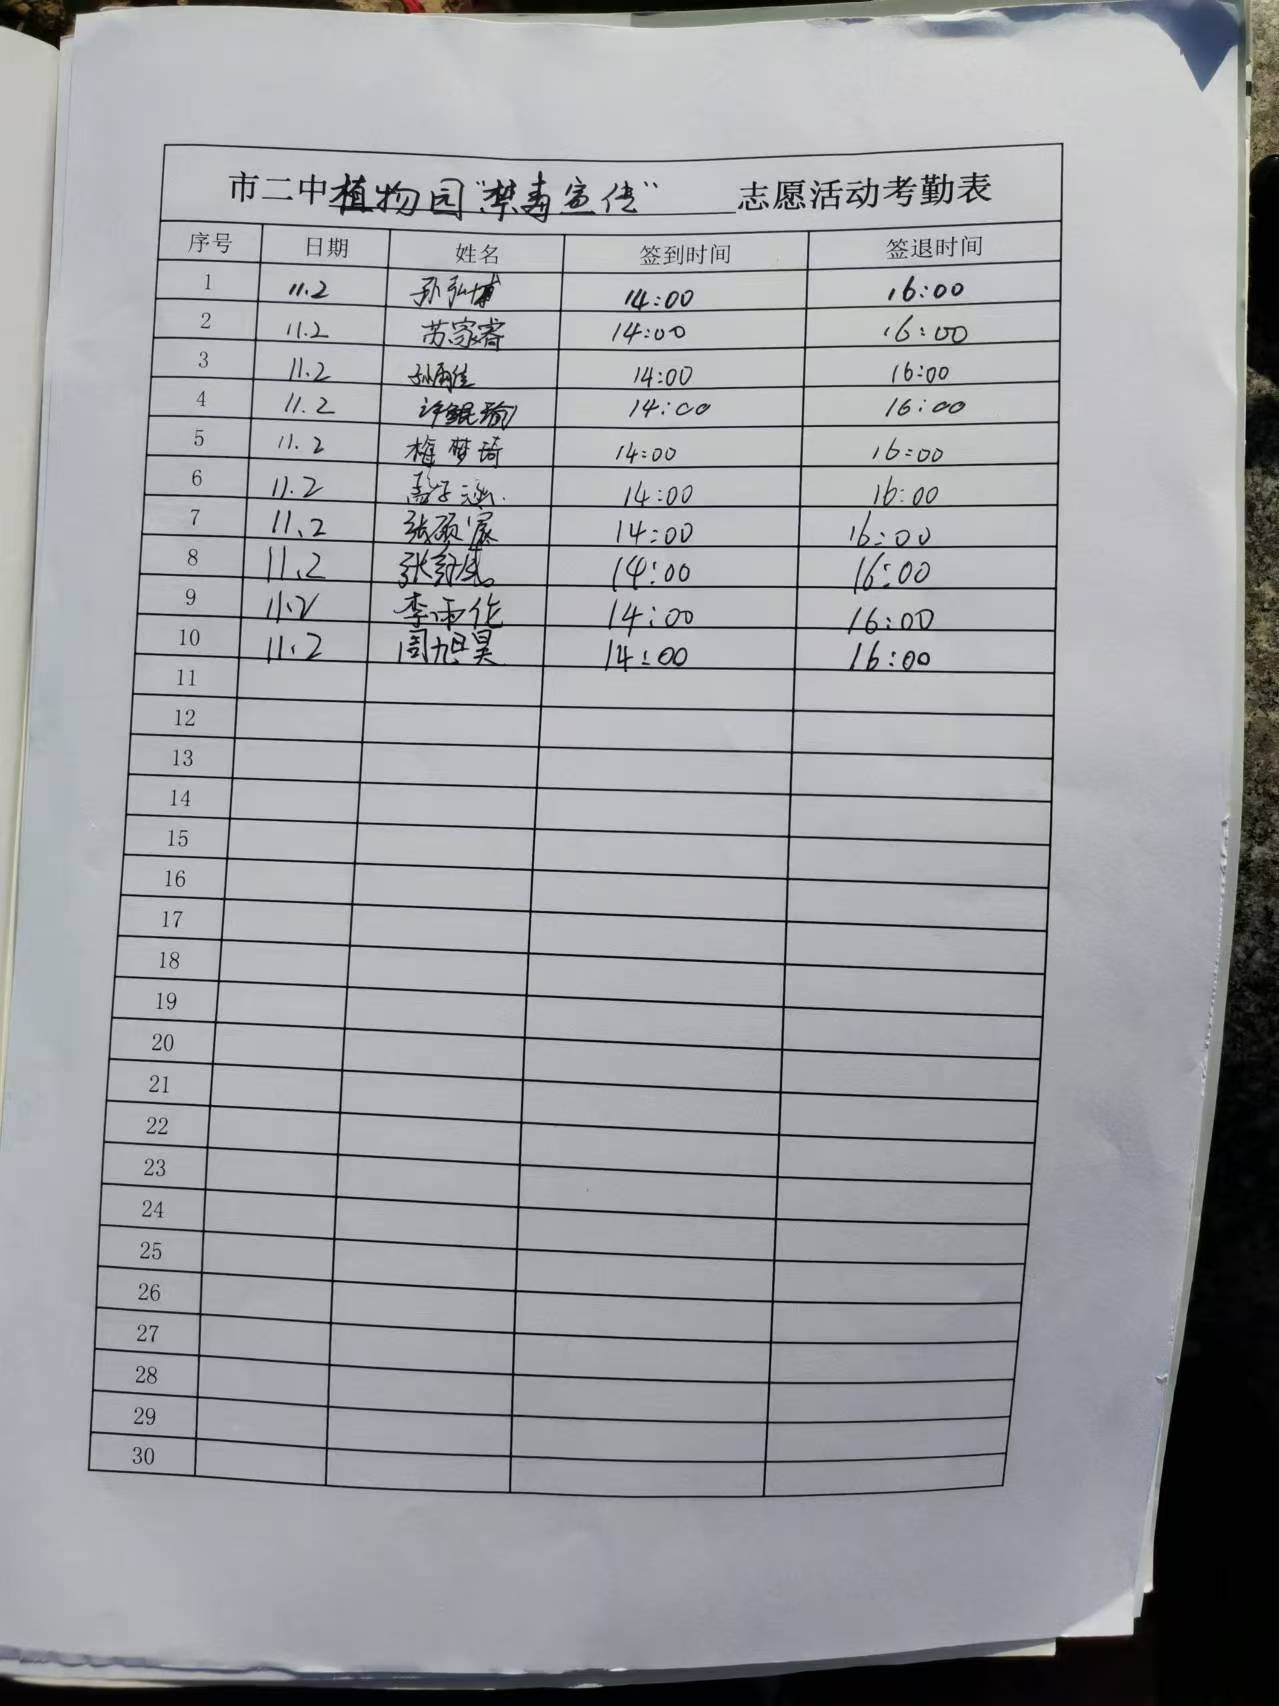 市二中植物园“禁毒宣传”志愿活动考勤表
序号 日期 姓名 签到时间 签退时间
1 11.2 孙弘博 14:00 16:00
2 11.2 苏家睿 14:00 16:00
3 11.2 孙雨佳 14:00 16:00
4 11.2 许鲲瑜 14:00 16:00
5 11.2 梅梦琦 14:00 16:00
6 11.2 孟子涵 14:00 16:00
7 11.2 张硕宸 14:00 16:00
8 11.2 张 14:00 16:00
9 11.2 李雨伦 14:00 16:00
10 11.2 周旭昊 14:00 16:00
11
12
13
14
15
16
17
18
19
20
21
22
23
24
25
26
27
28
29
30